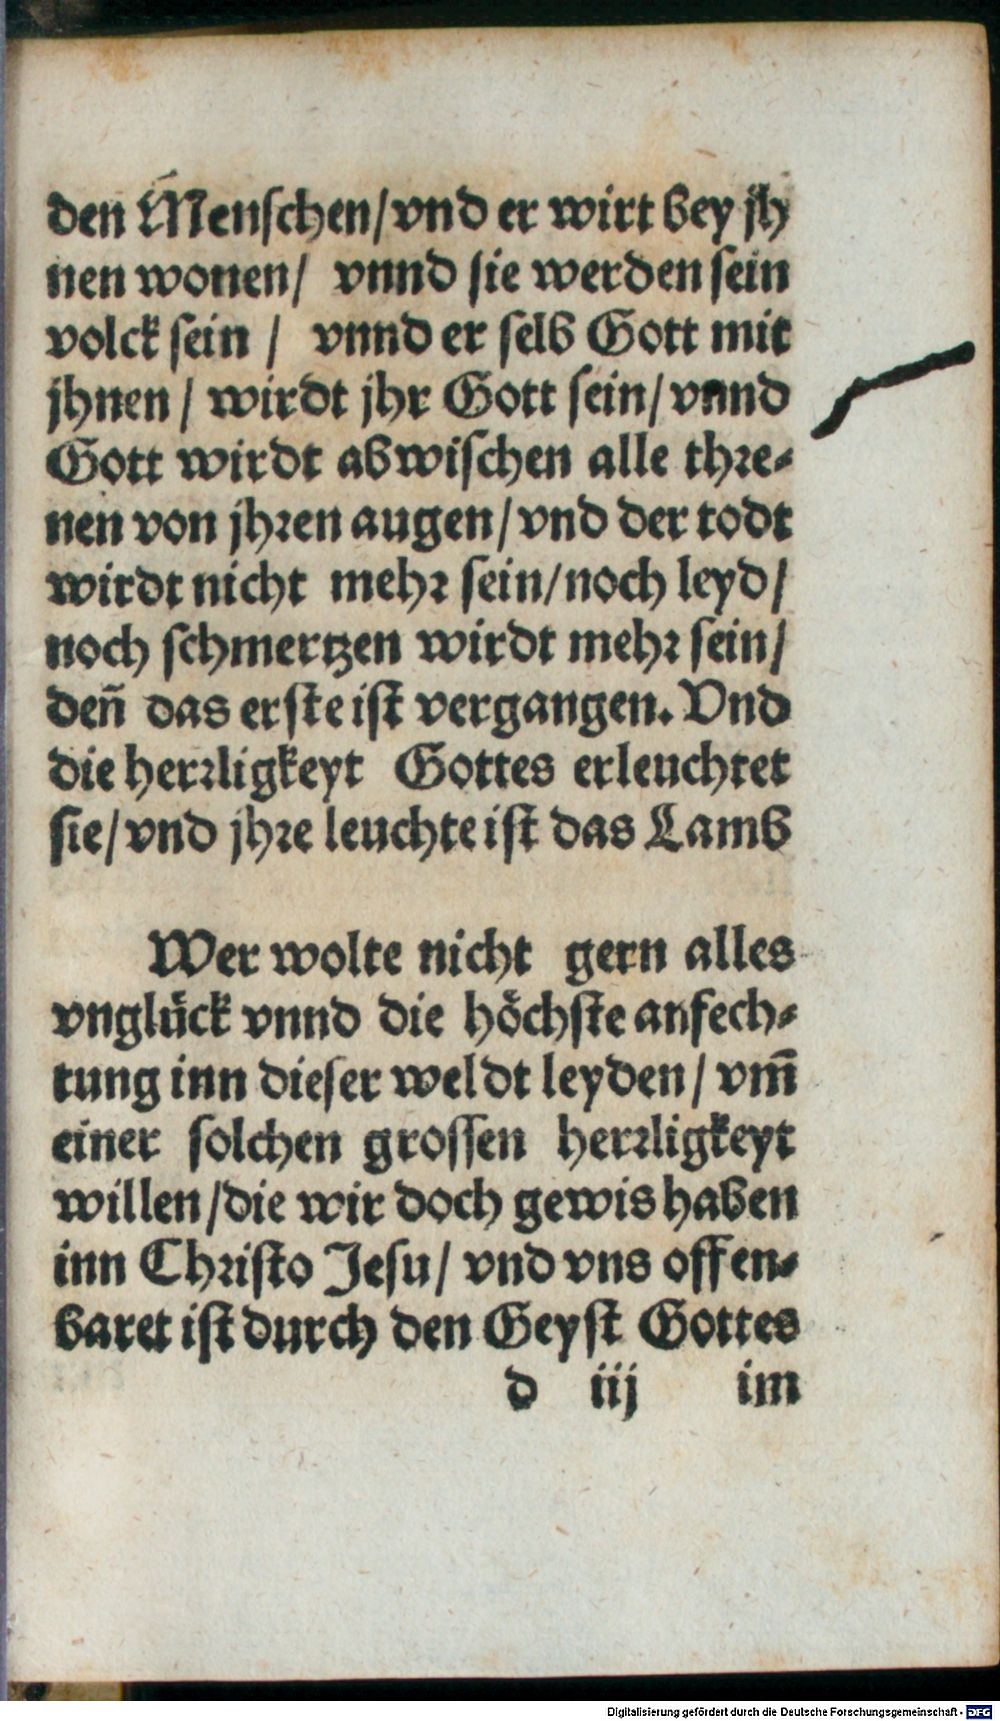 den Menschen/vnd er wirt bey jh
nen wonen/ vnnd sie werden sein
volck sein / vnnd er selb Gott mit
jhnen / wirdt jhr Gott sein/vnnd
Gott wirdt abwischen alle thre-
nen von jhren augen/vnd der todt
wirdt nicht mehr sein/noch leyd/
noch schmertzen wirdt mehr sein/
deñ das erste ist vergangen. Vnd
die herrligkeyt Gottes erleuchtet
sie/vnd jhre leuchte ist das Lamb
Wer wolte nicht gern alles
vnglück vnnd die höchste anfech-
tung inn dieser weldt leyden/ vm̃
einer solchen grossen herrligkeyt
willen/die wir doch gewis haben
inn Christo Jesu/ vnd vns offen-
baret ist durch den Geyst Gottes
d iij im
Digitalisierung gefördert durch die Deutsche Forschungsgemeinschaft - DFG